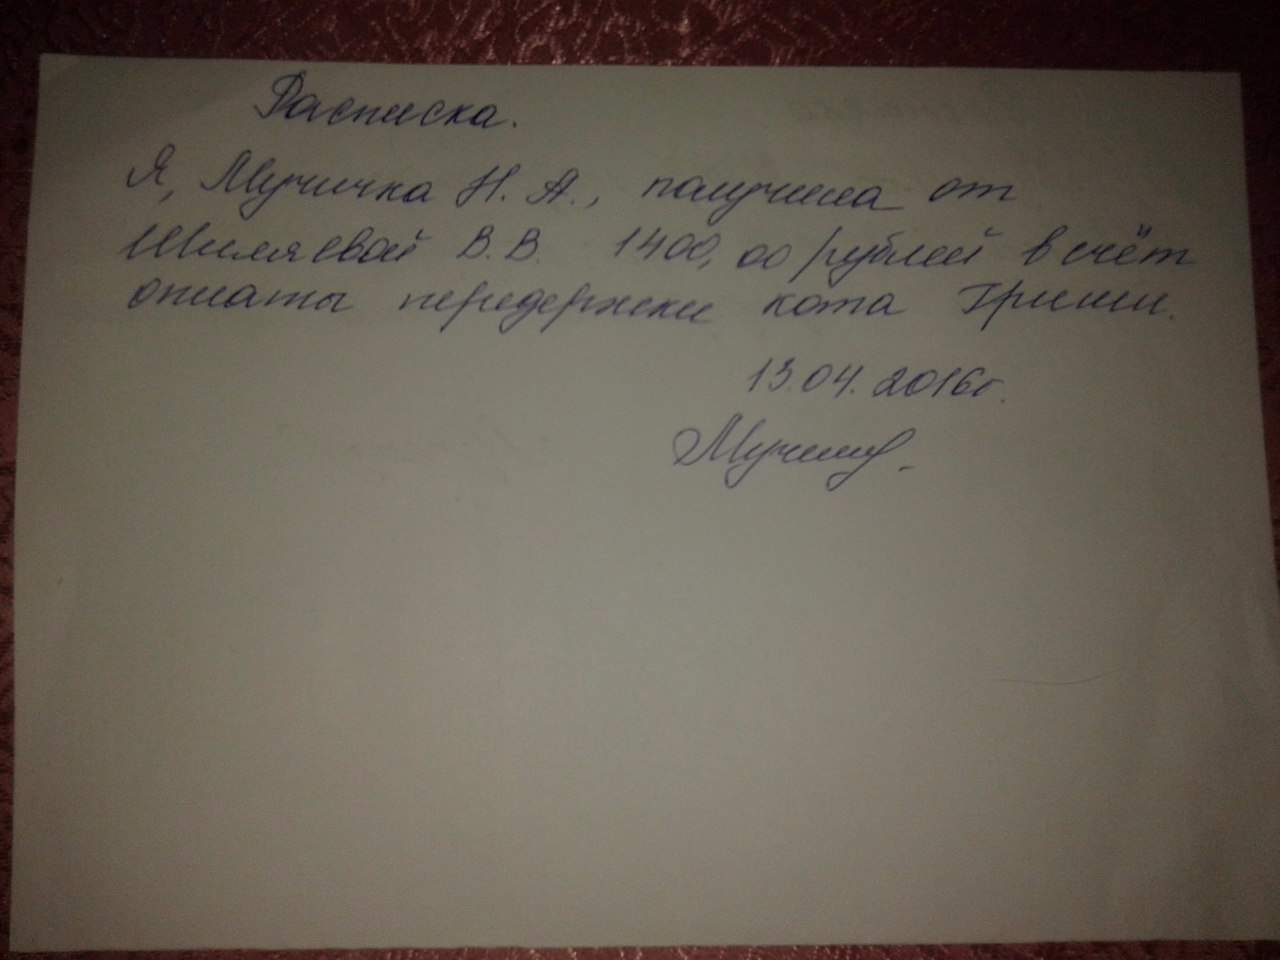 Расписка.
Я, Мучичка Н. А., получила от
Шиляевой В. В. 1400,00 рублей в счёт
оплаты передержки кота Гриши.
13.04.2016г.